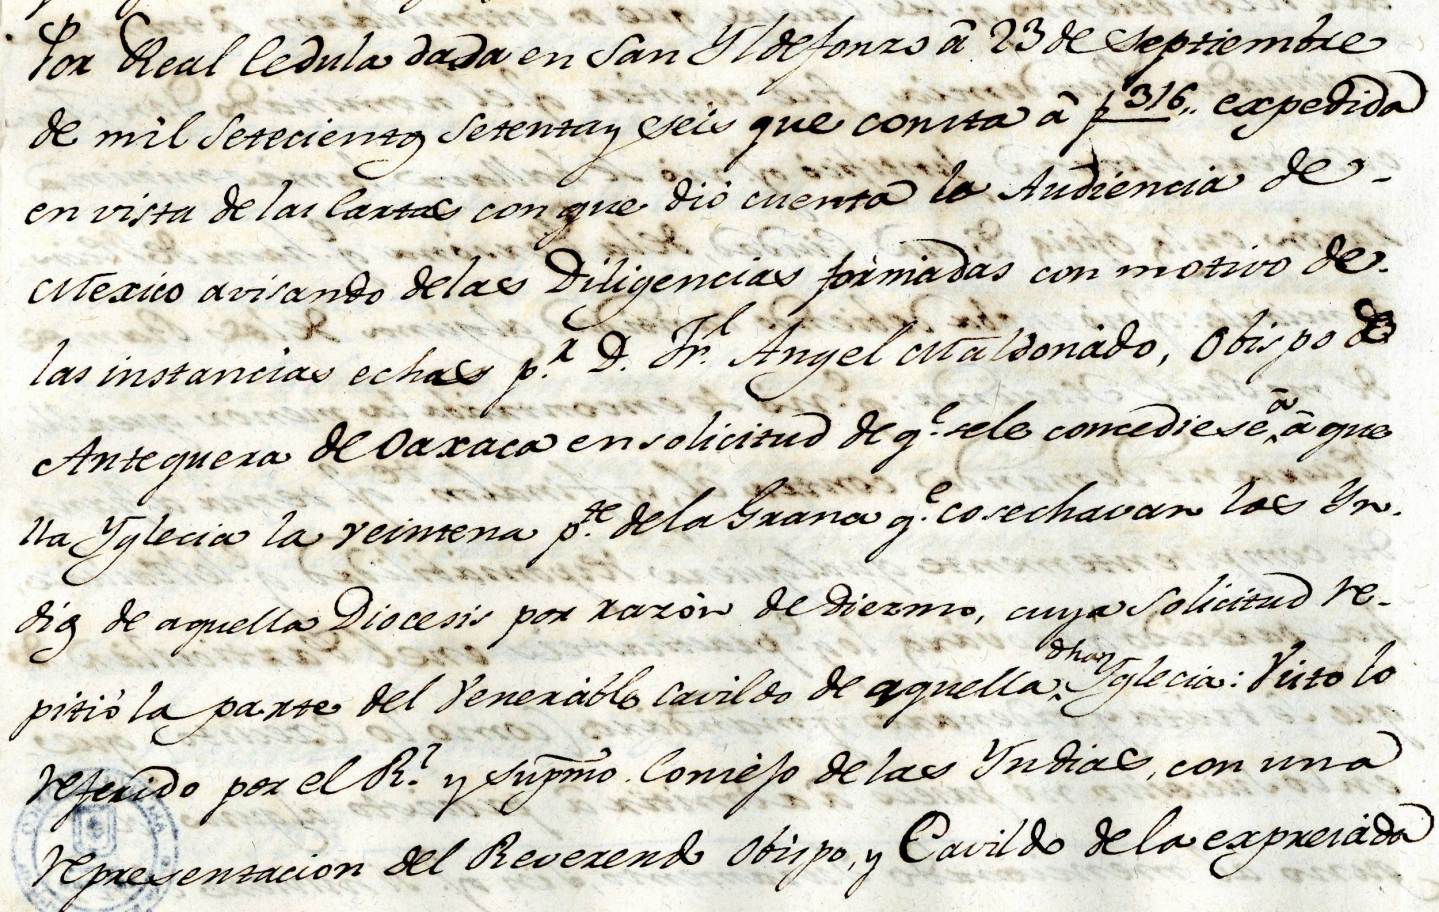 Por Real Cedula dada en San Yldefonzo â 23 de Septiembre
de mil Setecientos Setenta y seis que consta â f 316,, expedida
en vista de las Cartas con que diò cuenta la Audiencia de -
Mexico avisando de las Diligencias formadas con motivo de.
las instancias echas p.r D. Fr. Angel Maldonado, Obispo de
Antequera de Oaxaca en solicitud de q.e sele concediese, a â que
lla Yglecia la veintena p.te de la Grana q.e cosechavan los Yn.
dios de aquella Diocesis por razòn de diezmo, cuya solicitud re-
pitiò la parte del Venerable Cavildo de aquella dha Yglecia: Visto lo
referido por el R.l y Supmo. Consejo de las Yndias, con una
representacion del Reverendo Obispo, y Cavildo de la expresada